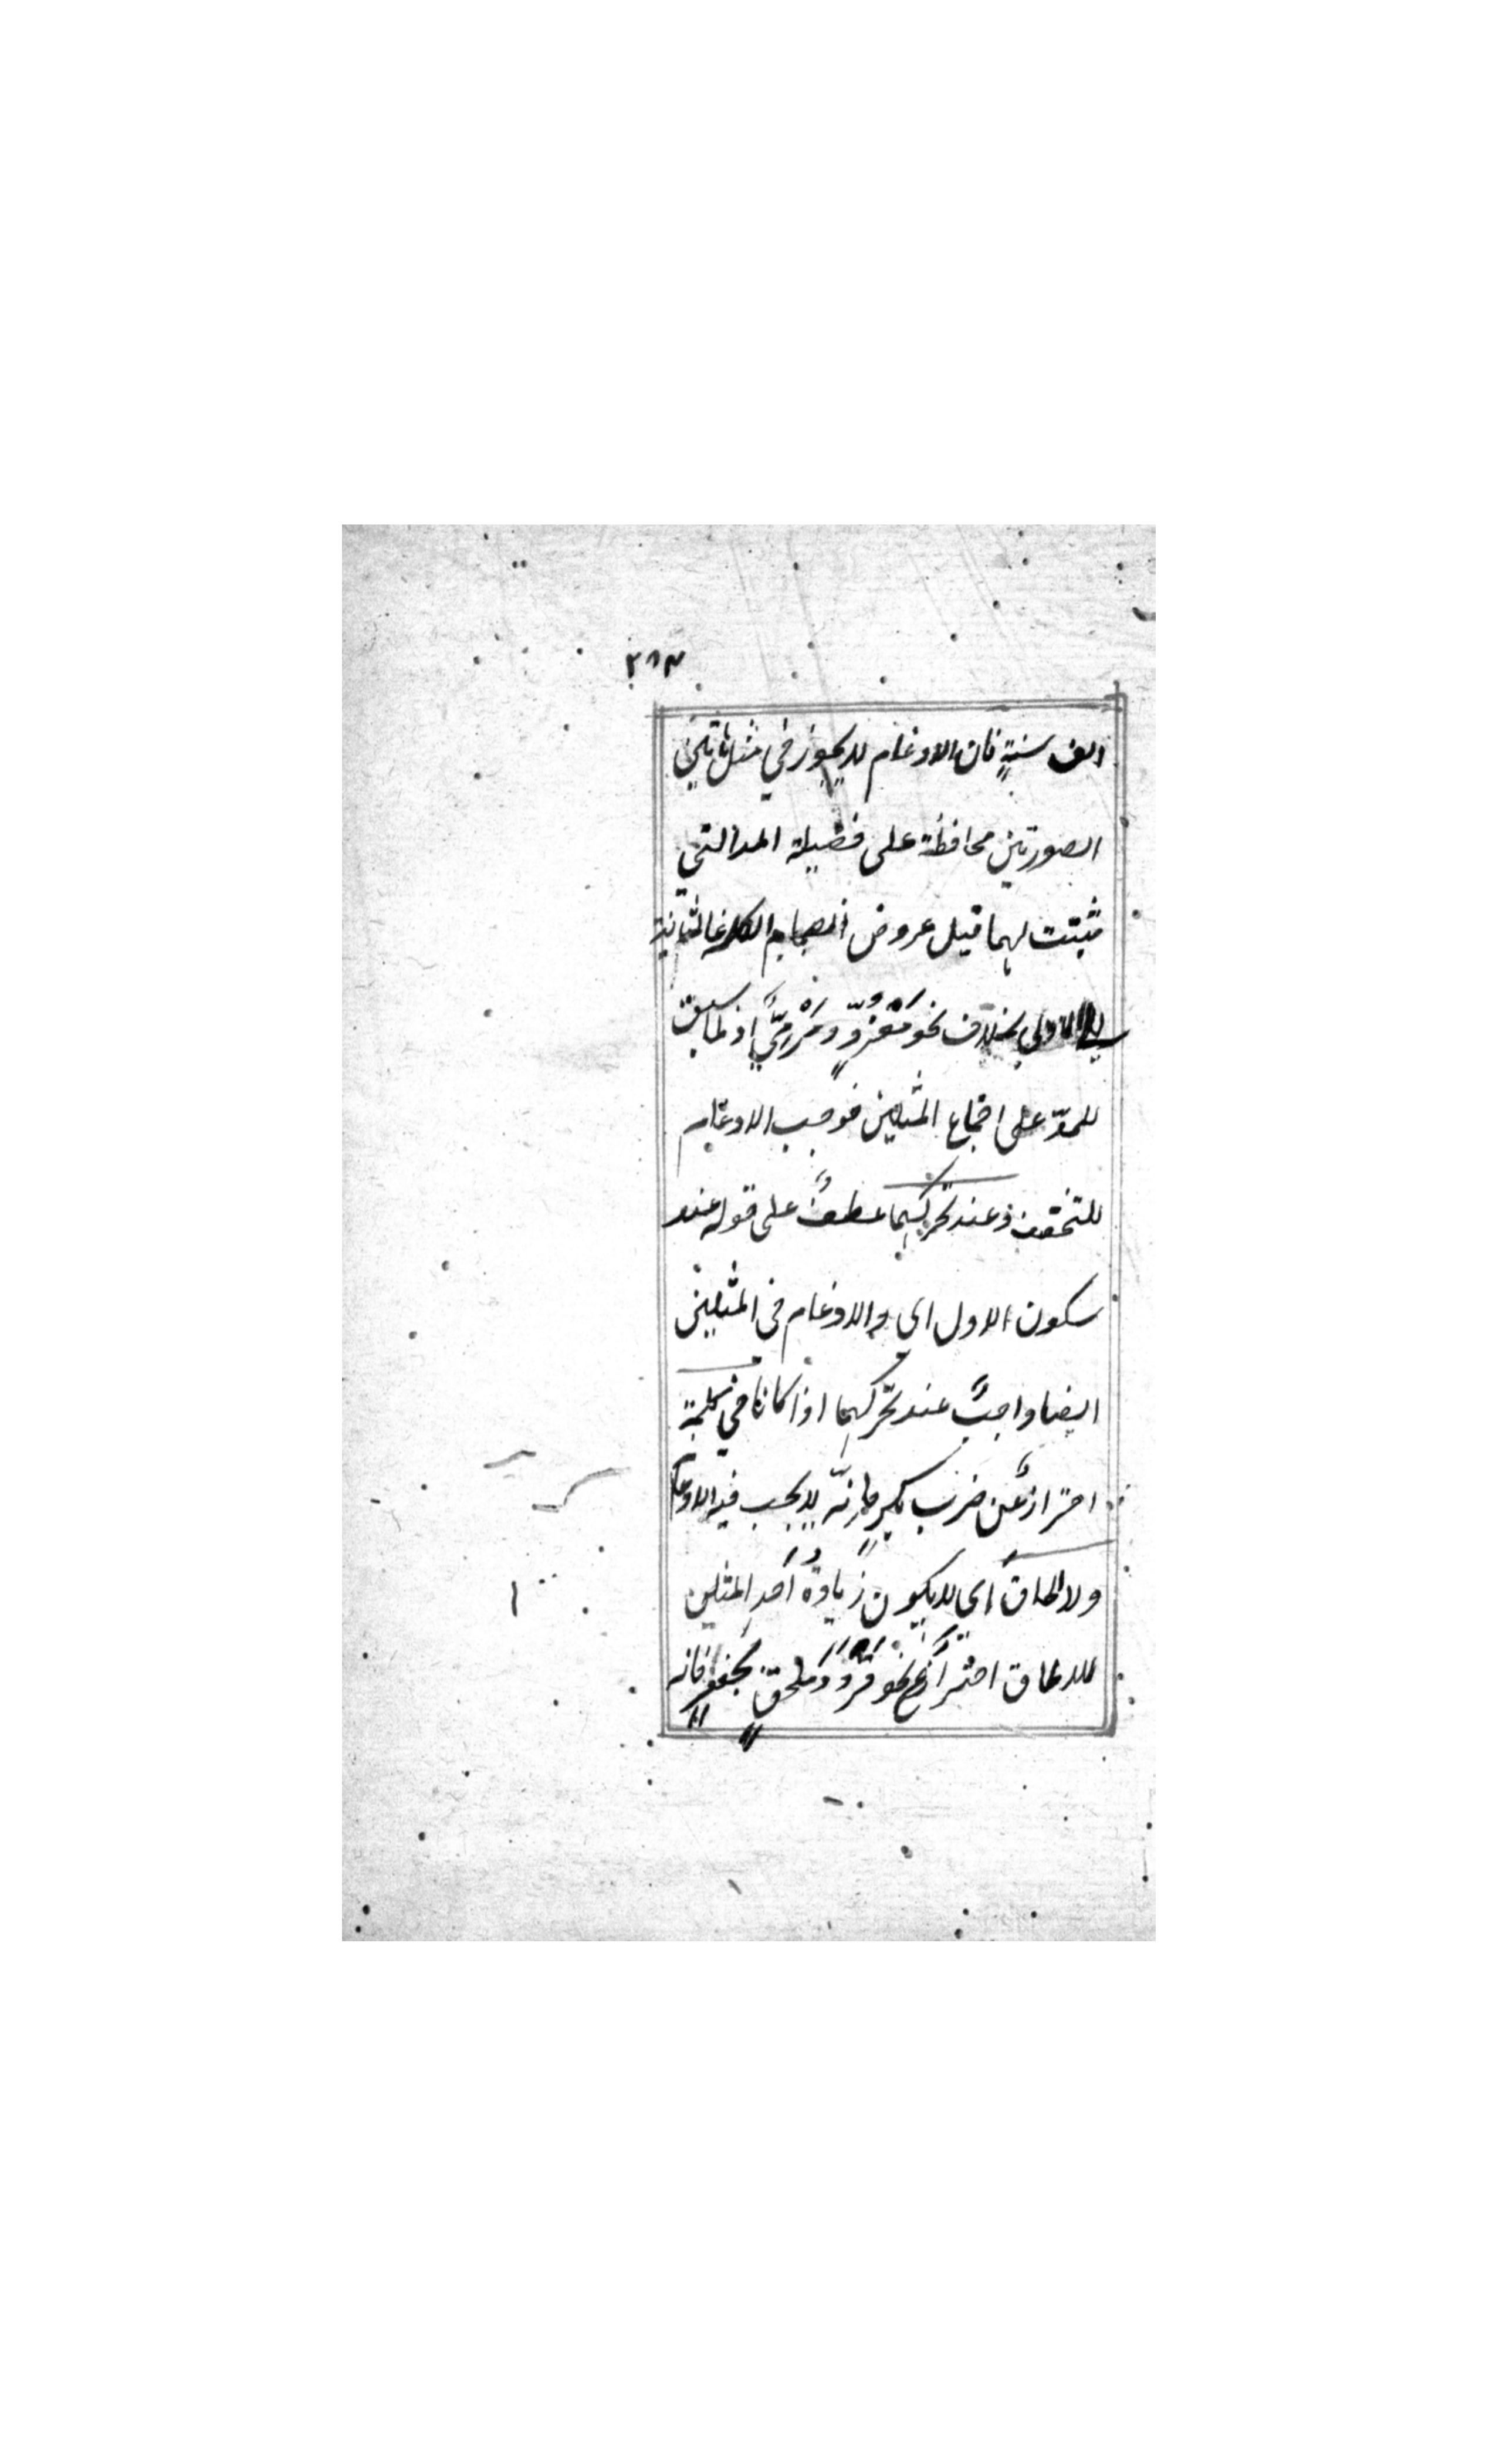 ٢٨٣
الف سنةٍ فان الادغام لا يجوز في مثل هاتين
الصورتين محافظة على فضيلة المد التي
ثبتت لهما قبل عروض انضمام الكلمة الثانية
الى الاولى بخلاف نحو مَغْزُوٍّ ومَرْمِيٍّ اذ لا سبق
للمدّ على اجتماع المثلين فوجب الادغام
للتخفيف وعند تحركهما عطفٌ على قوله عند
سكون الاول اي والادغام في المثلين
ايضا واجبٌ عند تحرّكهما اذا كانا في كلمة
احترازٌ عن ضرب بكرٍ فانّه لا يجب فيه الادغام
ولا الحاق اي لا يكون زيادةُ أحدِ المثلين
للالحاق احترازٌ عن نحو قَرْدَدَ ملحقٍ بجعفرٍ فانه